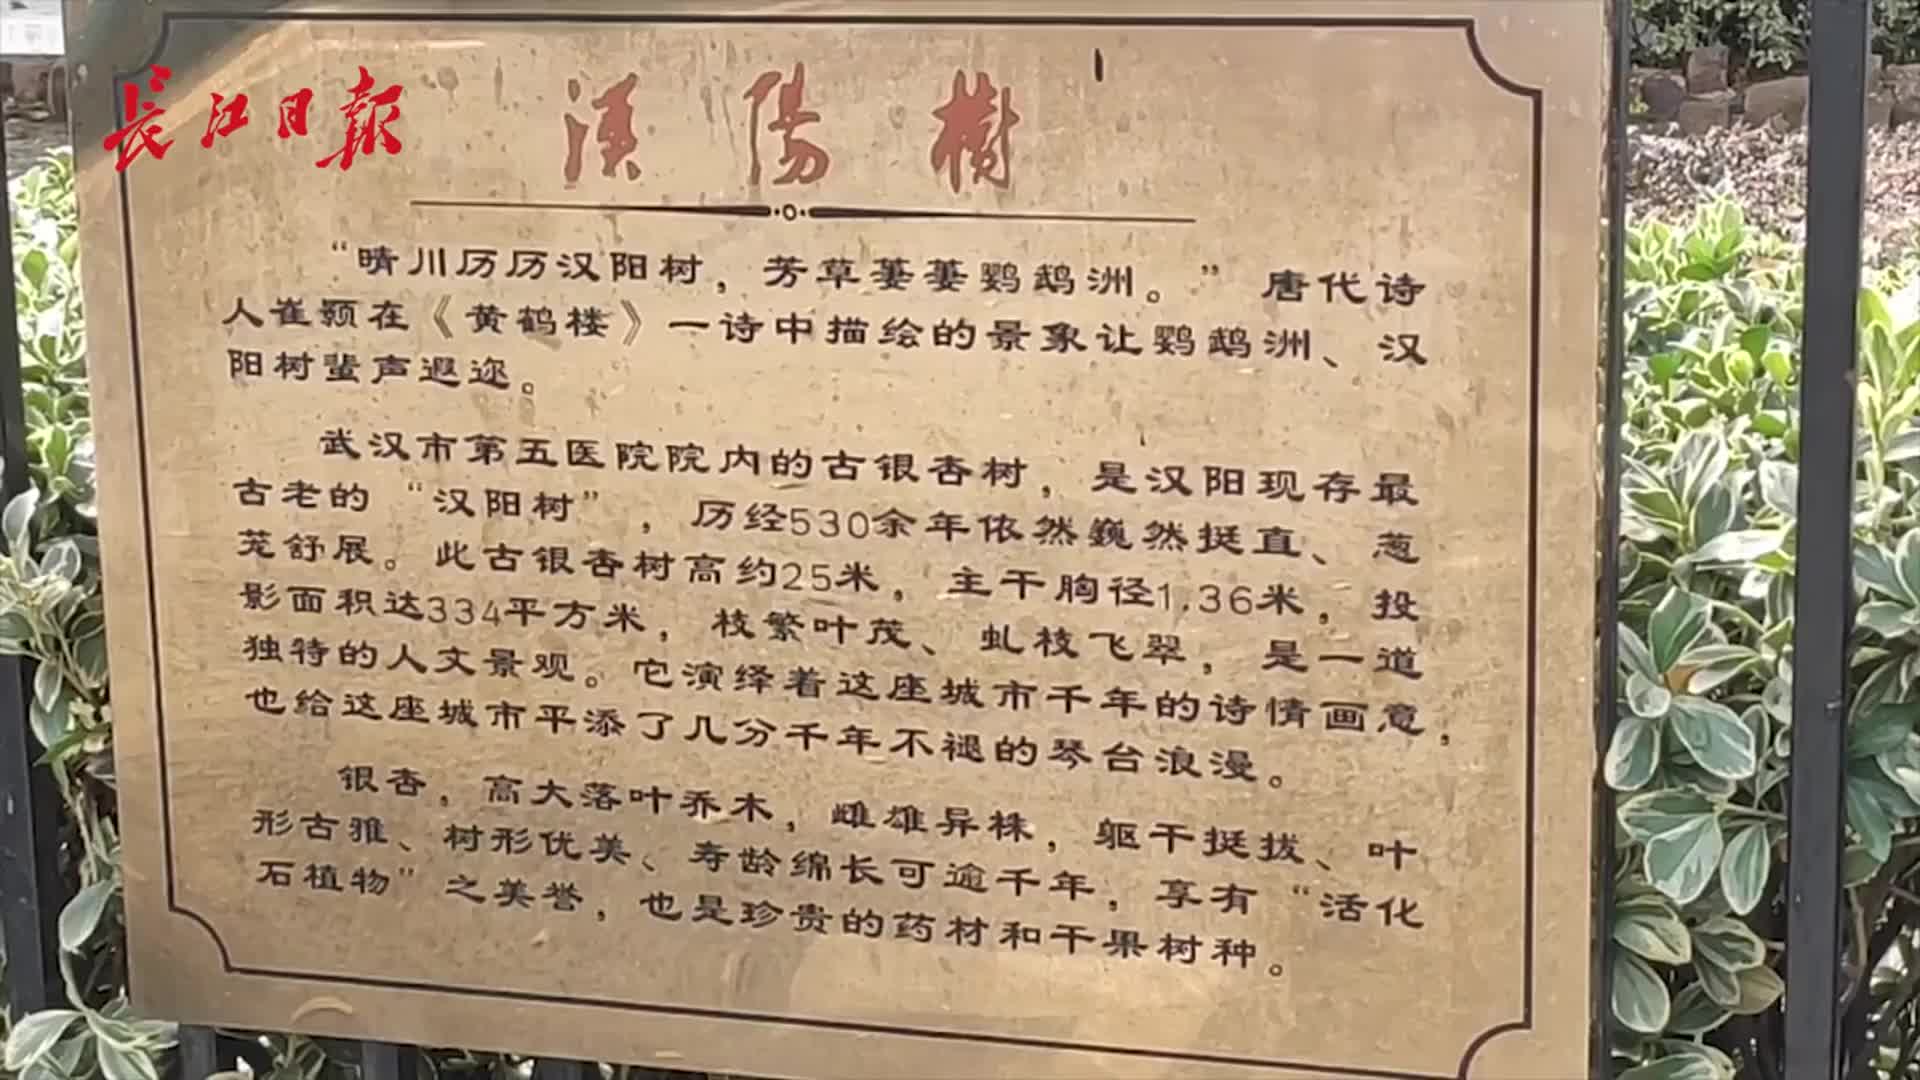 长江日报
漢陽樹
“晴川历历汉阳树，芳草萋萋鹦鹉洲。”唐代诗
人崔颢在《黄鹤楼》一诗中描绘的景象让鹦鹉洲、汉
阳树蜚声遐迩。
武汉市第五医院院内的古银杏树，是汉阳现存最
古老的“汉阳树”，历经530余年依然巍然挺直、葱
茏舒展。此古银杏树高约25米，主干胸径1.36米，投
影面积达334平方米，枝繁叶茂、虬枝飞翠，是一道
独特的人文景观。它演绎着这座城市千年的诗情画意，
也给这座城市平添了几分千年不褪的琴台浪漫。
银杏，高大落叶乔木，雌雄异株，躯干挺拔、叶
形古雅、树形优美、寿龄绵长可逾千年，享有“活化
石植物”之美誉，也是珍贵的药材和干果树种。